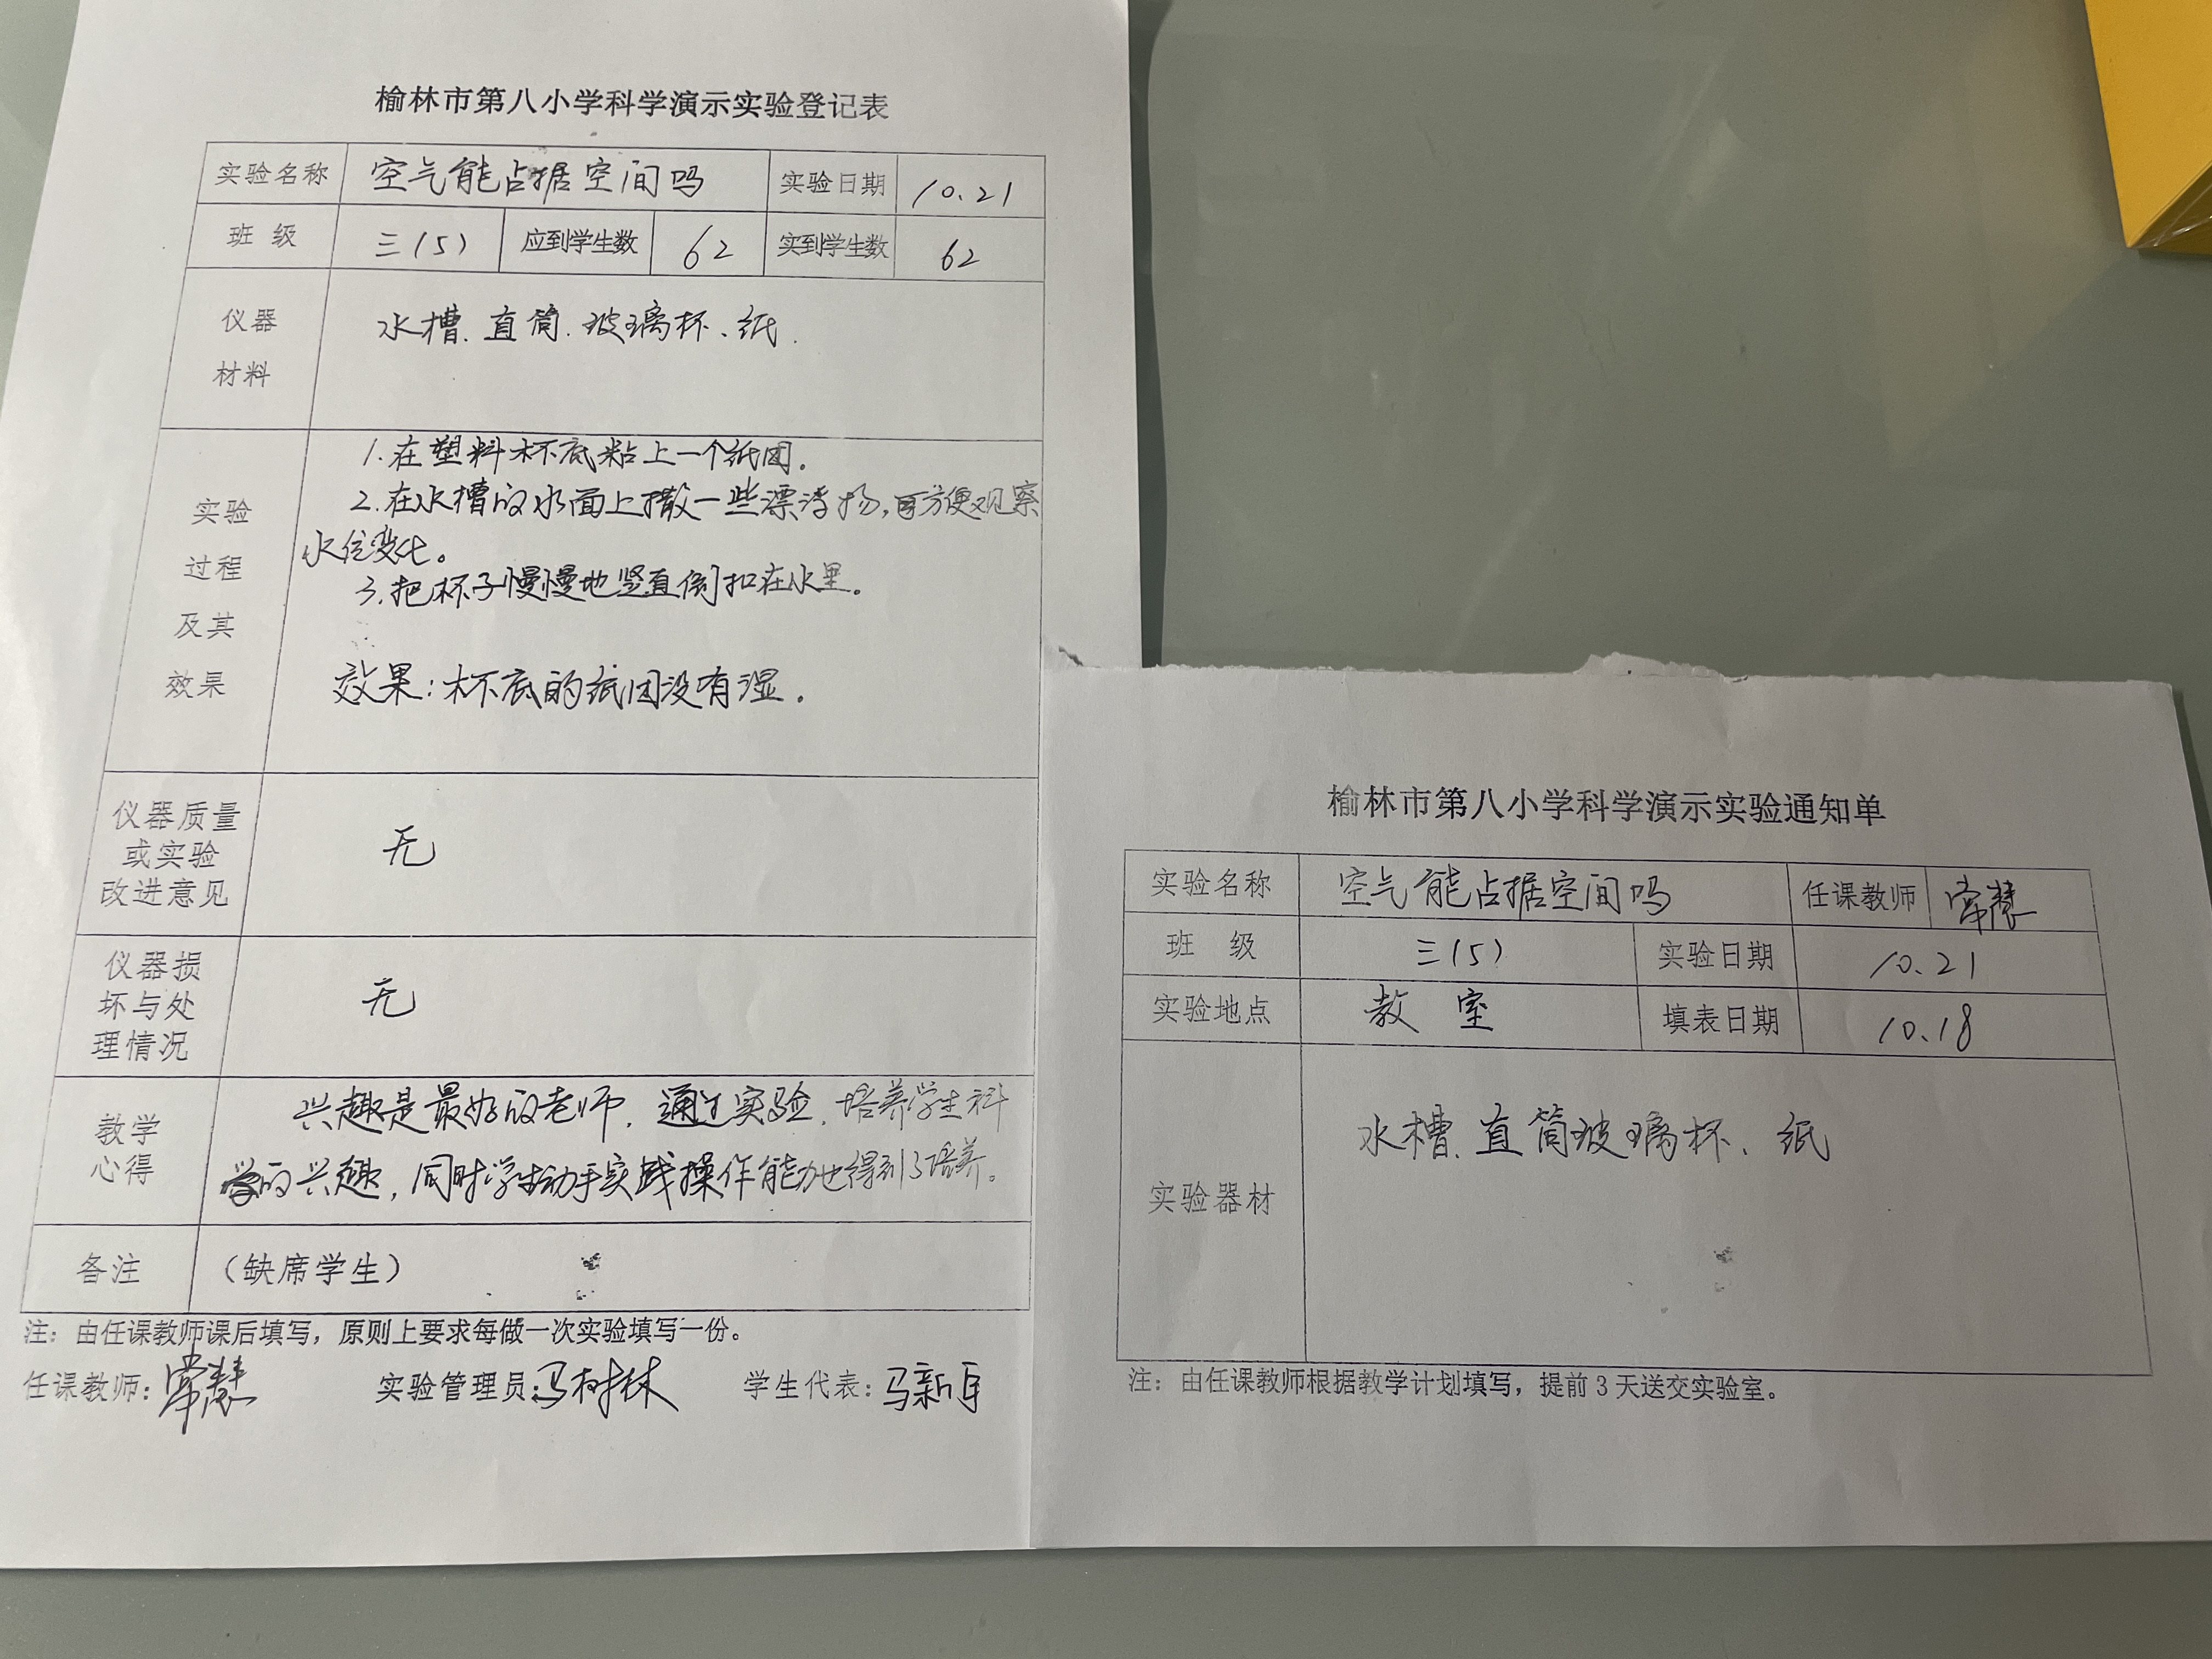 榆林市第八小学科学演示实验登记表
实验名称 空气能占据空间吗 实验日期 10.21
班 级 三(5) 应到学生数 62 实到学生数 62
仪器
材料
水槽、直筒、玻璃杯、纸.
实验
过程
及其
效果
1.在塑料杯底粘上一个纸团。
2.在水槽的水面上撒一些漂浮物,方便观察
水位变化。
3.把杯子慢慢地竖直倒扣在水里。
效果:杯底的纸团没有湿.
仪器质量
或实验
改进意见
无
仪器损
坏与处
理情况
无
教学
心得
兴趣是最好的老师,通过实验,培养学生科
学的兴趣,同时学生动手实践操作能力也得到了培养。
各注 (缺席学生)
注:由任课教师课后填写,原则上要求每做一次实验填写一份。
任课教师:常慧 实验管理员:马树林 学生代表:马新
榆林市第八小学科学演示实验通知单
实验名称 空气能占据空间吗 任课教师 常慧
班 级 三(5) 实验日期 10.21
实验地点 教 室 填表日期 10.18
实验器材 水槽、直筒玻璃杯、纸
注:由任课教师根据教学计划填写,提前3天送交实验室。